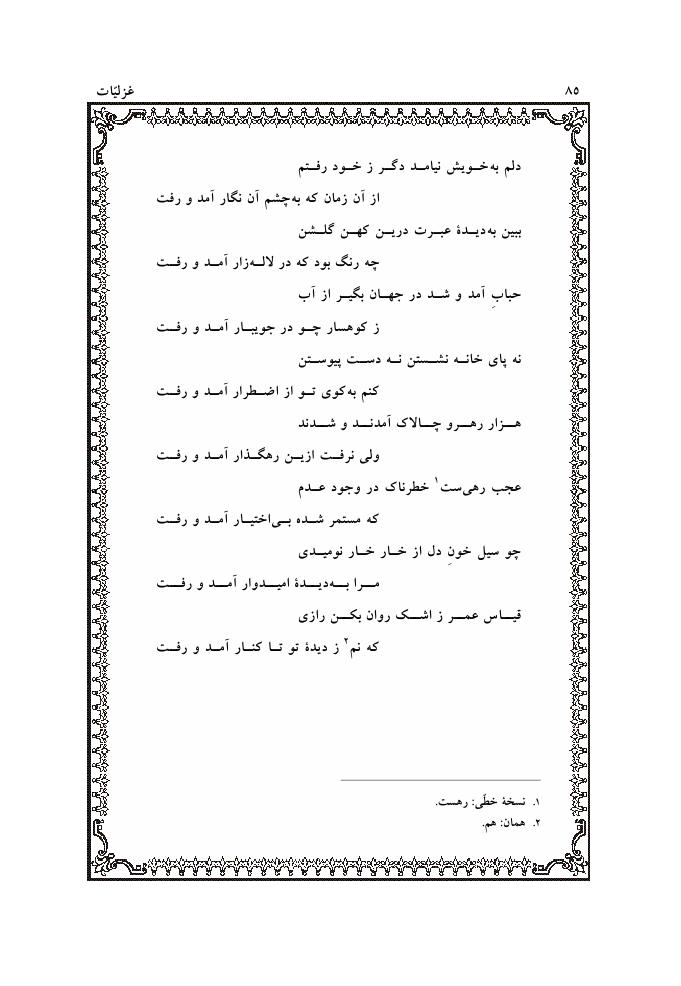 ۸۵ غزلیّات
دلم به‌خویش نیامد دگر ز خود رفتم
از آن زمان که به‌چشم آن نگار آمد و رفت
ببین به‌دیدهٔ عبرت درین کهن گلشن
چه رنگ بود که در لاله‌زار آمد و رفت
حبابِ آمد و شد در جهان بگیر از آب
ز کوهسار چو در جویبار آمد و رفت
نه پای خانه نشستن نه دست پیوستن
کنم به‌کوی تو از اضطرار آمد و رفت
هزار رهرو چالاک آمدند و شدند
ولی نرفت ازین رهگذار آمد و رفت
عجب رهی‌ست۱ خطرناک در وجود عدم
که مستمر شده بی‌اختیار آمد و رفت
چو سیل خونِ دل از خار خار نومیدی
مرا به‌دیدهٔ امیدوار آمد و رفت
قیاس عمر ز اشک روان بکن رازی
که نم۲ ز دیدهٔ تو تا کنار آمد و رفت
۱. نسخهٔ خطّی: رهست.
۲. همان: هم.